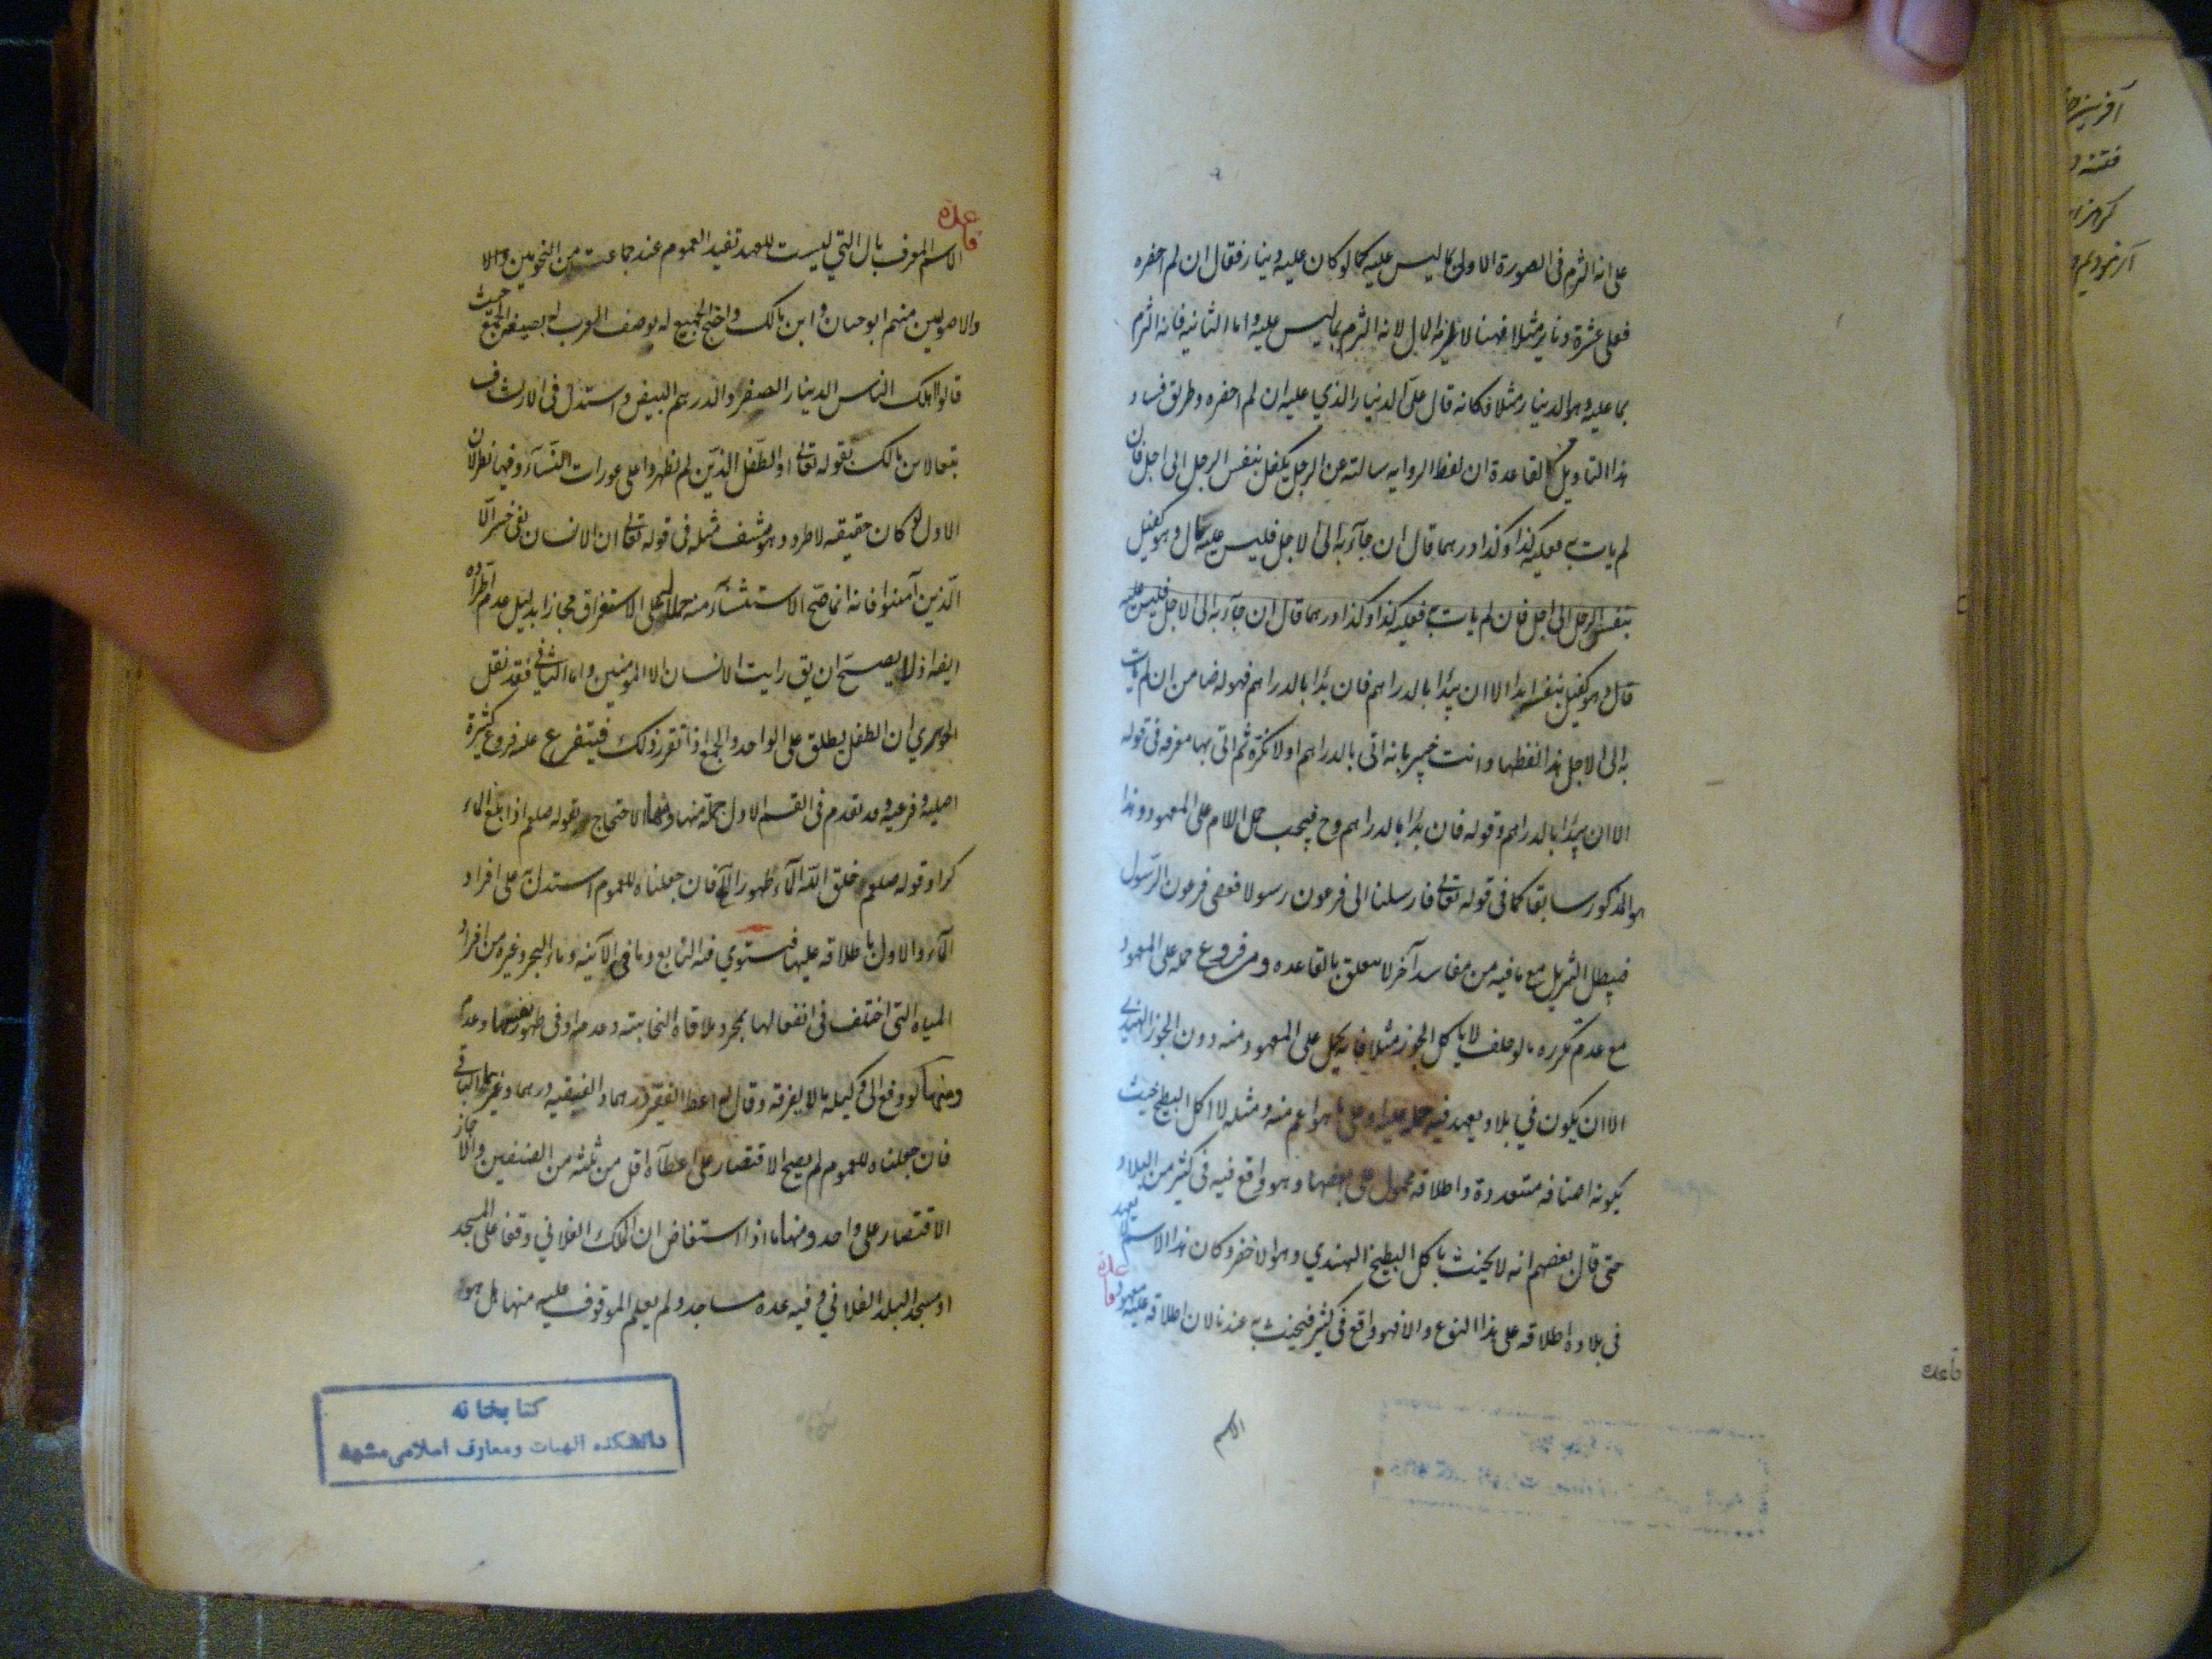 على انه الثزم فى الصورة الاولى بما ليس عليه كما لو كان عليه دينار فقال ان لم احضره
فعلى عشرة دنانير مثلا فهنا لا يلزمه المال لانه الثزم بما ليس عليه واما الثانيه فانه الثزم
بما عليه وهو الدينار مثلا فكانه قال على الدينار الذي عليه ان لم احضره وطريق فساد
هذا التاويل القاعدة ان لفظ الروايه سالته عن الرجل يكفل بنفس الرجل الى اجل فان
لم يات به فعليه كذا وكذا درهما قال ان جآء به الى الاجل فليس عليه مال وهو كفيل
بنفس الرجل الى اجل فان لم يات به فعليه كذا وكذا درهما قال ان جآء به الى الاجل فليس عليه
قال وهو كفيل بنفسه ابدا الا ان يبدا بالدراهم فان بدا بالدراهم فهو له ضامن ان لم يات
به الى الاجل هذا لفظها وانت خبير بانه اتى بالدراهم اولا نكرة ثم اتى بها معرفه فى قوله
الا ان يبدا بالدراهم وقوله فان بدا بالدراهم وح فيجب حمل اللام على المعهود وهذا
هو المذكور سابقا كما فى قوله تعالى فارسلنا الى فرعون رسولا فعصى فرعون الرسول
فيبطل التنزيل مع ما فيه من مفاسد آخر لا تتعلق بالقاعده ومن فروع حمله على المعهود
مع عدم تكرره ما لو حلف لا ياكل الجوز مثلا فانه يحمل على المعهود منه دون الجوز الهندي
الا ان يكون في بلاد يعهد فيه حمله عليه او على ما هو اعم منه ومثله لا اكل البطيخ حيث
يكون اصنافه متعددة واطلاقه محمول على بعضها وهو واقع فيه فى كثير من البلاد
حتى قال بعضهم انه لا يحنث باكل البطيخ الهندي وهو الاخضر وكان هذا الاسم لا يعهد
فى بلاده اطلاقه على هذا النوع والا فهو واقع فى كثير فيحنث به عندنا لان اطلاقه عليه معهود
قاعدة
الاسم
قاعدة
الاسم المعرف بال التي ليست للعهد تفيد العموم عند جماعت من النحويين
والاصوليين منهم ابو حيان وابن مالك واحتج الجميع له بوصف العرب له بصيغه الجمع حيث
قالوا اهلك الناس الدينار الصفر والدرهم البيض واستدل فى الارتشاف
تبعا لابن مالك بقوله تعالى او الطفل الذين لم يظهروا على عورات النسآء وفيها نظر لان
الاول لو كان حقيقه لاطرد وهو منتف مثله فى قوله تعالى ان الانسان لفى خسر الا
الذين آمنوا فانه انما صح الاستثنآء منه حملا له على الاستغراق مجازا بدليل عدم اطراده
ايضا اذ لا يصح ان يق رايت الانسان الا المومنين واما الثاني فقد نقل
الجوهري ان الطفل يطلق على الواحد والجمع اذا تقرر ذلك فيتفرع عليه فروع كثيرة
اصليه وفرعيه وقد تقدم فى القسم الاول جملة منها ومنها الاحتجاج بقوله صلعم اذا بلغ المآء
كرا وقوله صلعم خلق الله المآء طهورا الخ فان جعلناه للعموم استدل به على افراد
المآء والاول باطلاقه عليها فيستوي فيه النابع وما في الآنيه ومآء البحر وغيره من افراد
المياه التى اختلف فى انفعالها بمجرد ملاقاة النجاسته وعدمه او فى طهور نفسها وعدمه
ومنها لو دفع الى وكيله مالا ليفرقه وقال له اعط الفقير درهما والفقيه درهما وغيرهما الباقي
فان جعلناه للعموم لم يصح الاقتصار على اعطآء اقل من ثلثه من الصنفين والا جاز
الاقتصار على واحد ومنها ما اذا استفاض ان الملك الفلاني وقفا على المسجد
او مسجد البلد الفلاني وفيه عده مساجد ولم يعلم الموقوف عليه منها هل هو
كتابخانه
دانشكده الهيات ومعارف اسلامى مشهد